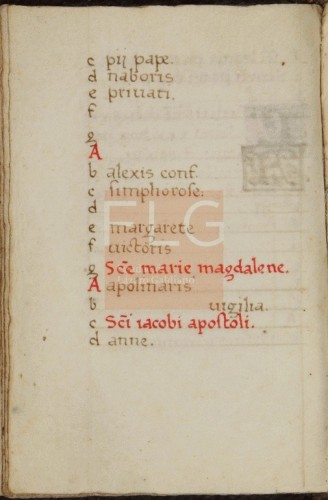 c pij pape.
d naboris
e priuati.
f
g
A
b alexis conf.
c simphorose.
d
e margarete
f victoris
g Scē marie magdalene.
A apolinaris
b vigilia.
c Scī iacobi apostoli.
d anne.
FLG